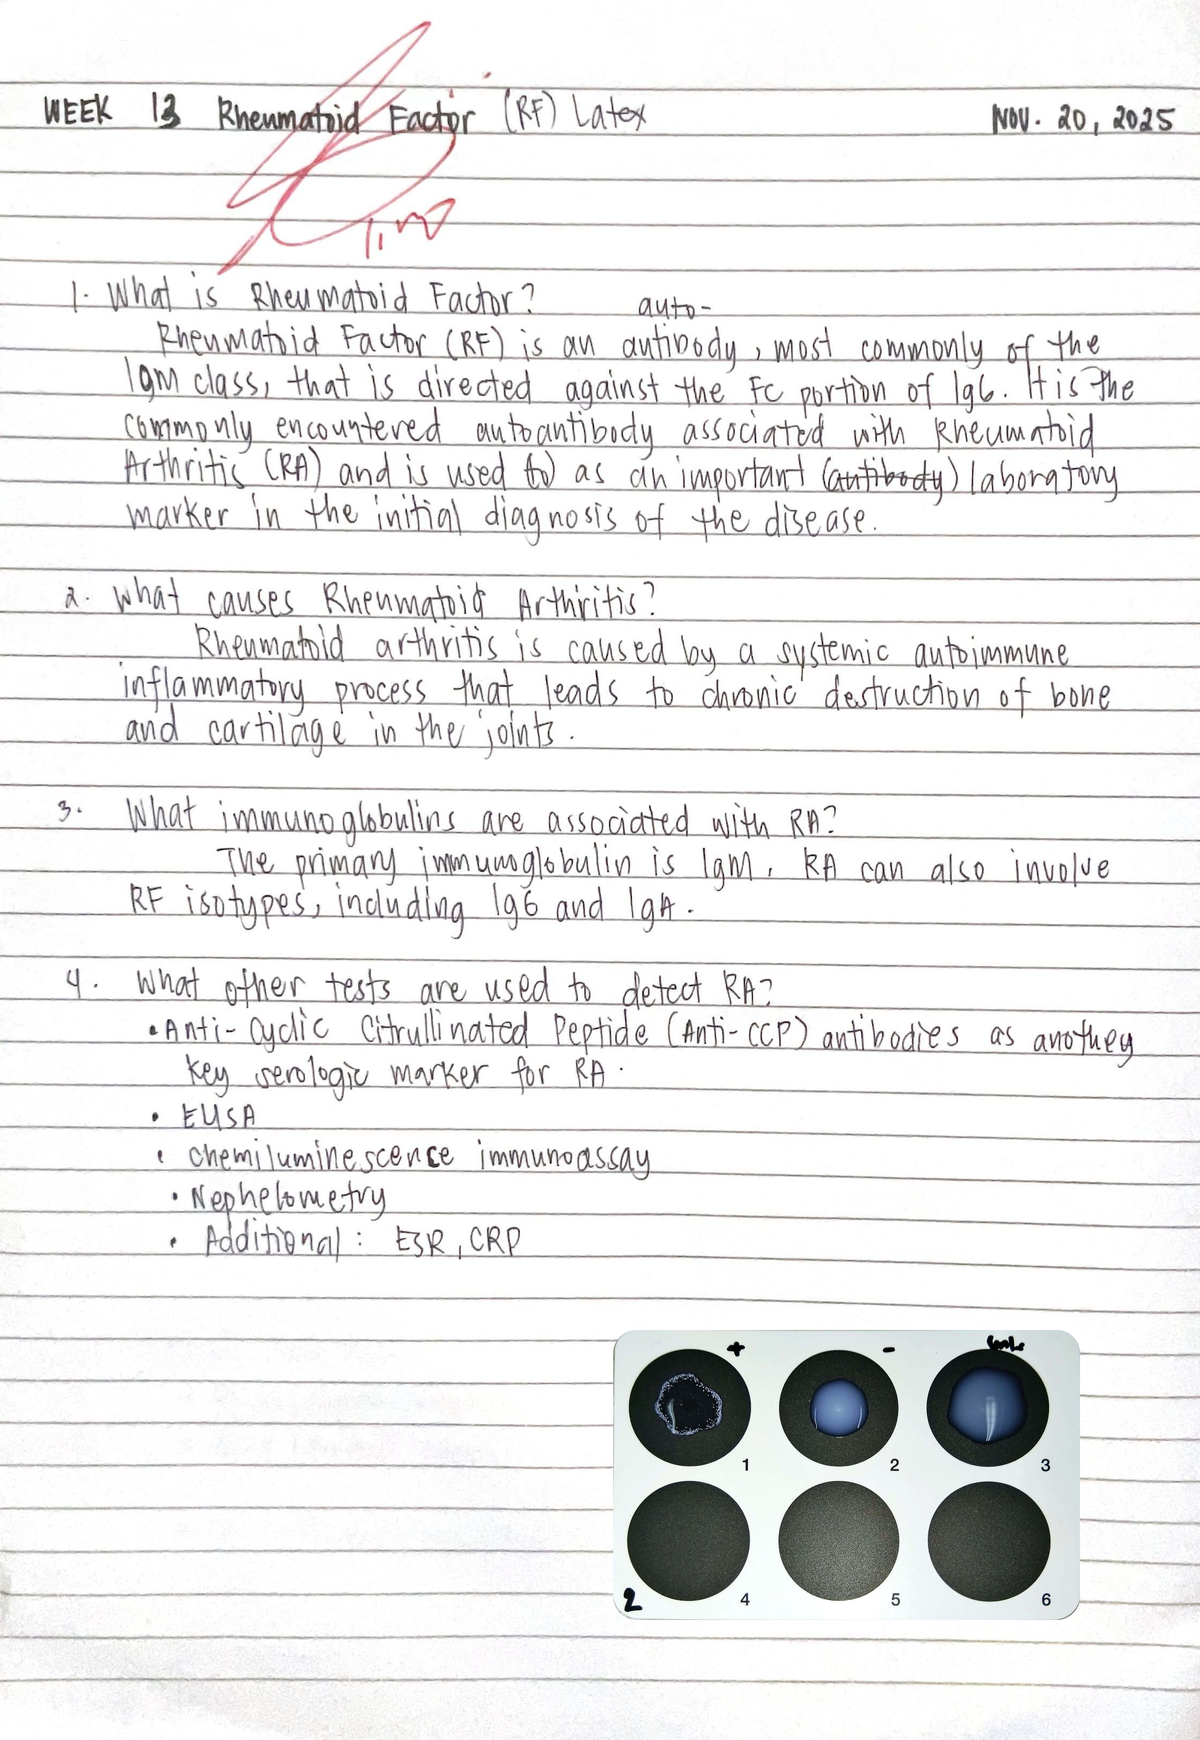 WEEK 13 Rheumatoid Factor (RF) Latex NOV. 20, 2025
1. What is Rheumatoid Factor?
auto-
Rheumatoid Factor (RF) is an antibody, most commonly of the
IgM class, that is directed against the Fc portion of IgG. It is the
commonly encountered autoantibody associated with Rheumatoid
Arthritis (RA) and is used to) as an important (antibody) laboratory
marker in the initial diagnosis of the disease.
2. What causes Rheumatoid Arthritis?
Rheumatoid arthritis is caused by a systemic autoimmune
inflammatory process that leads to chronic destruction of bone
and cartilage in the joints.
3. What immunoglobulins are associated with RA?
The primary immunoglobulin is IgM. RA can also involve
RF isotypes, including IgG and IgA.
4. What other tests are used to detect RA?
• Anti-Cyclic Citrullinated Peptide (Anti-CCP) antibodies as another
key serologic marker for RA.
• ELISA
• chemiluminescence immunoassay
• Nephelometry
• Additional: ESR, CRP
+ -
1 2 3
2 4 5 6